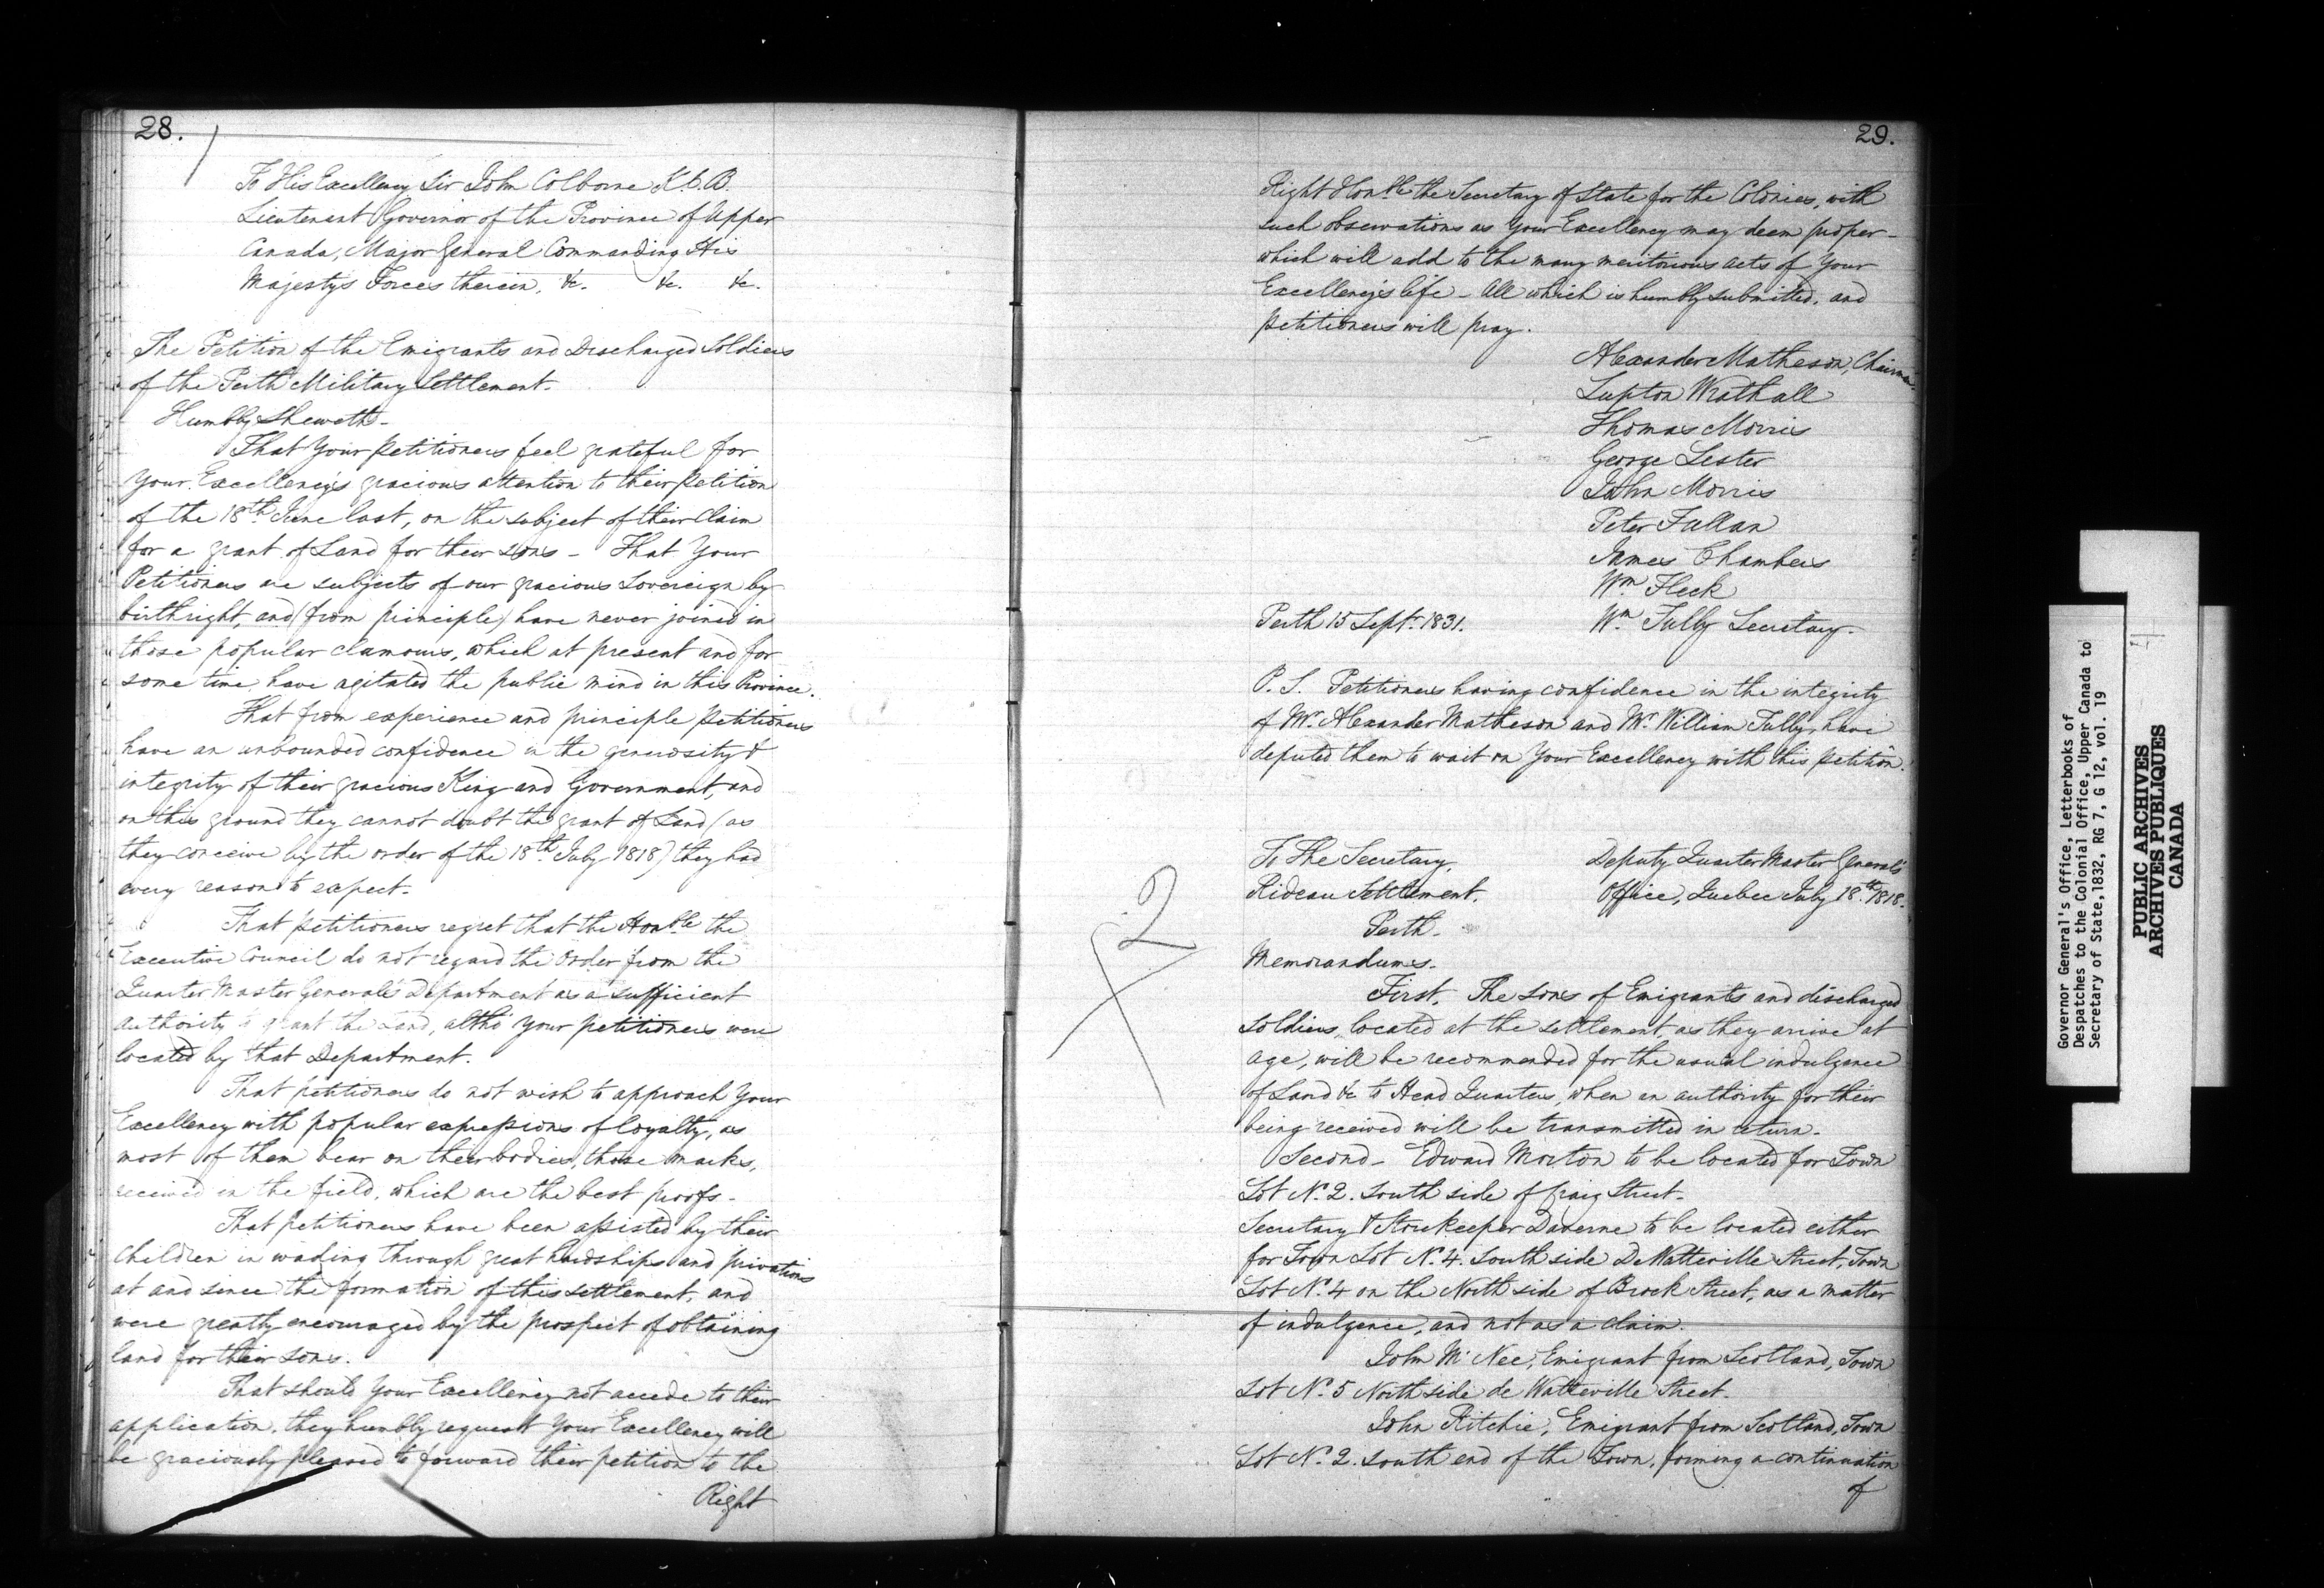 28.
To His Excellency Sir John Colborne K.C.B.
Lieutenant Governor of the Province of Upper
Canada, Major General Commanding His
Majesty's Forces therein, &c. &c. &c.
The Petition of the Emigrants and Discharged Soldiers
of the Perth Military Settlement.
Humbly Sheweth-
That Your petitioners feel grateful for
Your Excellency's gracious attention to their petition
of the 18th June last, on the subject of their Claim
for a grant of Land for their sons - That Your
Petitioners are subjects of our gracious Sovereign by
birthright, and (from principle) have never joined in
those popular clamours, which at present and for
some time have agitated the public mind in this Province.
That from experience and principle petitioners
have an unbounded confidence in the generosity &
integrity of their gracious King and Government, and
on this ground they cannot doubt the grant of Land (as
they conceive by the order of the 18th July 1818) they had
every reason to expect.
That petitioners regret that the Honble the
Executive Council do not regard the Order from the
Quarter Master General's Department as a sufficient
authority to grant the Land, altho' Your petitioners were
located by that Department.
That petitioners do not wish to approach Your
Excellency with popular expressions of loyalty, as
most of them bear on their bodies, those marks,
received in the field, which are the best proofs-
That petitioners have been assisted by their
children in wading through great hardships and privations
at and since the formation of this settlement, and
were greatly encouraged by the prospect of obtaining
land for their sons.
That should Your Excellency not accede to their
application, they humbly request Your Excellency will
be graciously pleased to forward their petition to the
Right
29.
Right Honble the Secretary of State for the Colonies, with
such observations as Your Excellency may deem proper-
which will add to the many meritorious acts of Your
Excellency's life - All which is humbly submitted, and
petitioners will pray.
Alexander Matheson, Chairman
Lupton Wrathall
Thomas Morris
George Lester
John Morris
Peter Fallan
James Chambers
Wm Fleck
Perth 15 Septr 1831. Wm Tully Secretary.
P.S. Petitioners having confidence in the integrity
of Mr Alexander Matheson and Mr William Tully, have
deputed them to wait on Your Excellency with this petition.
To The Secretary, Deputy Quarter Master General's
Rideau Settlement. Office, Quebec July 18th 1818.
Perth-
2
Memorandums-
First. The sons of Emigrants and discharged
soldiers, located at the settlement, as they arrive at
age, will be recommended for the usual indulgence
of Land &c to Head Quarters, when an authority for their
being received will be transmitted in return.
Second- Edward Morton to be located for Town
Lot No 2. South side of Craig Street-
Secretary & Storekeeper Daverne to be located either
for Town Lot No 4. South side De Watteville Street, Town
Lot No 4 on the North side of Brock Street, as a matter
of indulgence, and not as a claim.
John McNee, Emigrant from Scotland, Town
Lot No 5 North side de Watteville Street.
John Ritchie, Emigrant from Scotland, Town
Lot No 2. South end of the Town, forming a continuation
of
Governor General's Office, Letterbooks of
Despatches to the Colonial Office, Upper Canada to
Secretary of State,1832, RG 7, G 12, vol. 19
PUBLIC ARCHIVES
ARCHIVES PUBLIQUES
CANADA